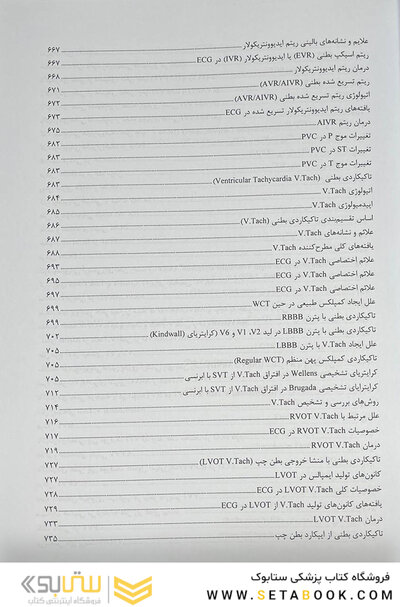 علایم و نشانه‌های بالینی ریتم ایدیوونتریکولار ۶۶۷
ریتم اسکیپ بطنی (EVR) یا ایدیوونتریکولار (IVR) در ECG ۶۶۷
درمان ریتم ایدیوونتریکولار ۶۶۸
ریتم تسریع شده بطنی (AVR/AIVR) ۶۷۱
اتیولوژی ریتم تسریع شده بطنی (AVR/AIVR) ۶۷۲
یافته‌های ریتم ایدیوونتریکولار تسریع شده در ECG ۶۷۳
درمان ریتم AIVR ۶۷۵
تغییرات موج P در PVC ۶۸۲
تغییرات ST در PVC ۶۸۳
تغییرات موج T در PVC ۶۸۳
تاکیکاردی بطنی (Ventricular Tachycardia V.Tach) ۶۸۳
اتیولوژی V.Tach ۶۸۴
اپیدمیولوژی V.Tach ۶۸۵
اساس تقسیم‌بندی تاکیکاردی بطنی (V.Tach) ۶۸۶
علائم و نشانه‌های V.Tach ۶۸۷
یافته‌های کلی مطرح‌کننده V.Tach ۶۸۸
علائم اختصاصی V.Tach در ECG ۶۹۳
علائم اختصاصی V.Tach در ECG ۶۹۵
علائم اختصاصی V.Tach در ECG ۶۹۷
علل ایجاد کمپلکس طبیعی در حین WCT ۶۹۹
تاکیکاردی بطنی با پترن RBBB ۶۹۹
تاکیکاردی بطنی با پترن LBBB در لید V1 ،V2 و V6 (کرایتریای Kindwall) ۷۰۲
علل ایجاد V.Tach با پترن LBBB ۷۰۵
تاکیکاردی کمپلکس پهن منظم (Regular WCT) ۷۰۵
کرایتریای تشخیصی Wellens در افتراق V.Tach از SVT با ابرنسی ۷۰۵
کرایترایای تشخیصی Brugada در افتراق V.Tach از SVT با ابرنسی ۷۱۲
روش‌های بررسی و تشخیص V.Tach ۷۱۴
علل مرتبط با RVOT V.Tach ۷۱۶
خصوصیات RVOT V.Tach در ECG ۷۱۷
درمان RVOT V.Tach ۷۱۹
تاکیکاردی بطنی با منشا خروجی بطن چپ (LVOT V.Tach) ۷۲۷
کانون‌های تولید ایمپالس در LVOT ۷۲۷
خصوصیات کلی LVOT V.Tach در ECG ۷۲۸
یافته‌های کانون‌های تولید V.Tach از LVOT در ECG ۷۲۹
درمان LVOT V.Tach ۷۳۳
تاکیکاردی بطنی از اپیکارد بطن چپ ۷۳۵
فروشگاه کتاب پزشکی ستابوک
WWW.SETABOOK.COM
ستابوک
فروشگاه اینترنتی کتاب